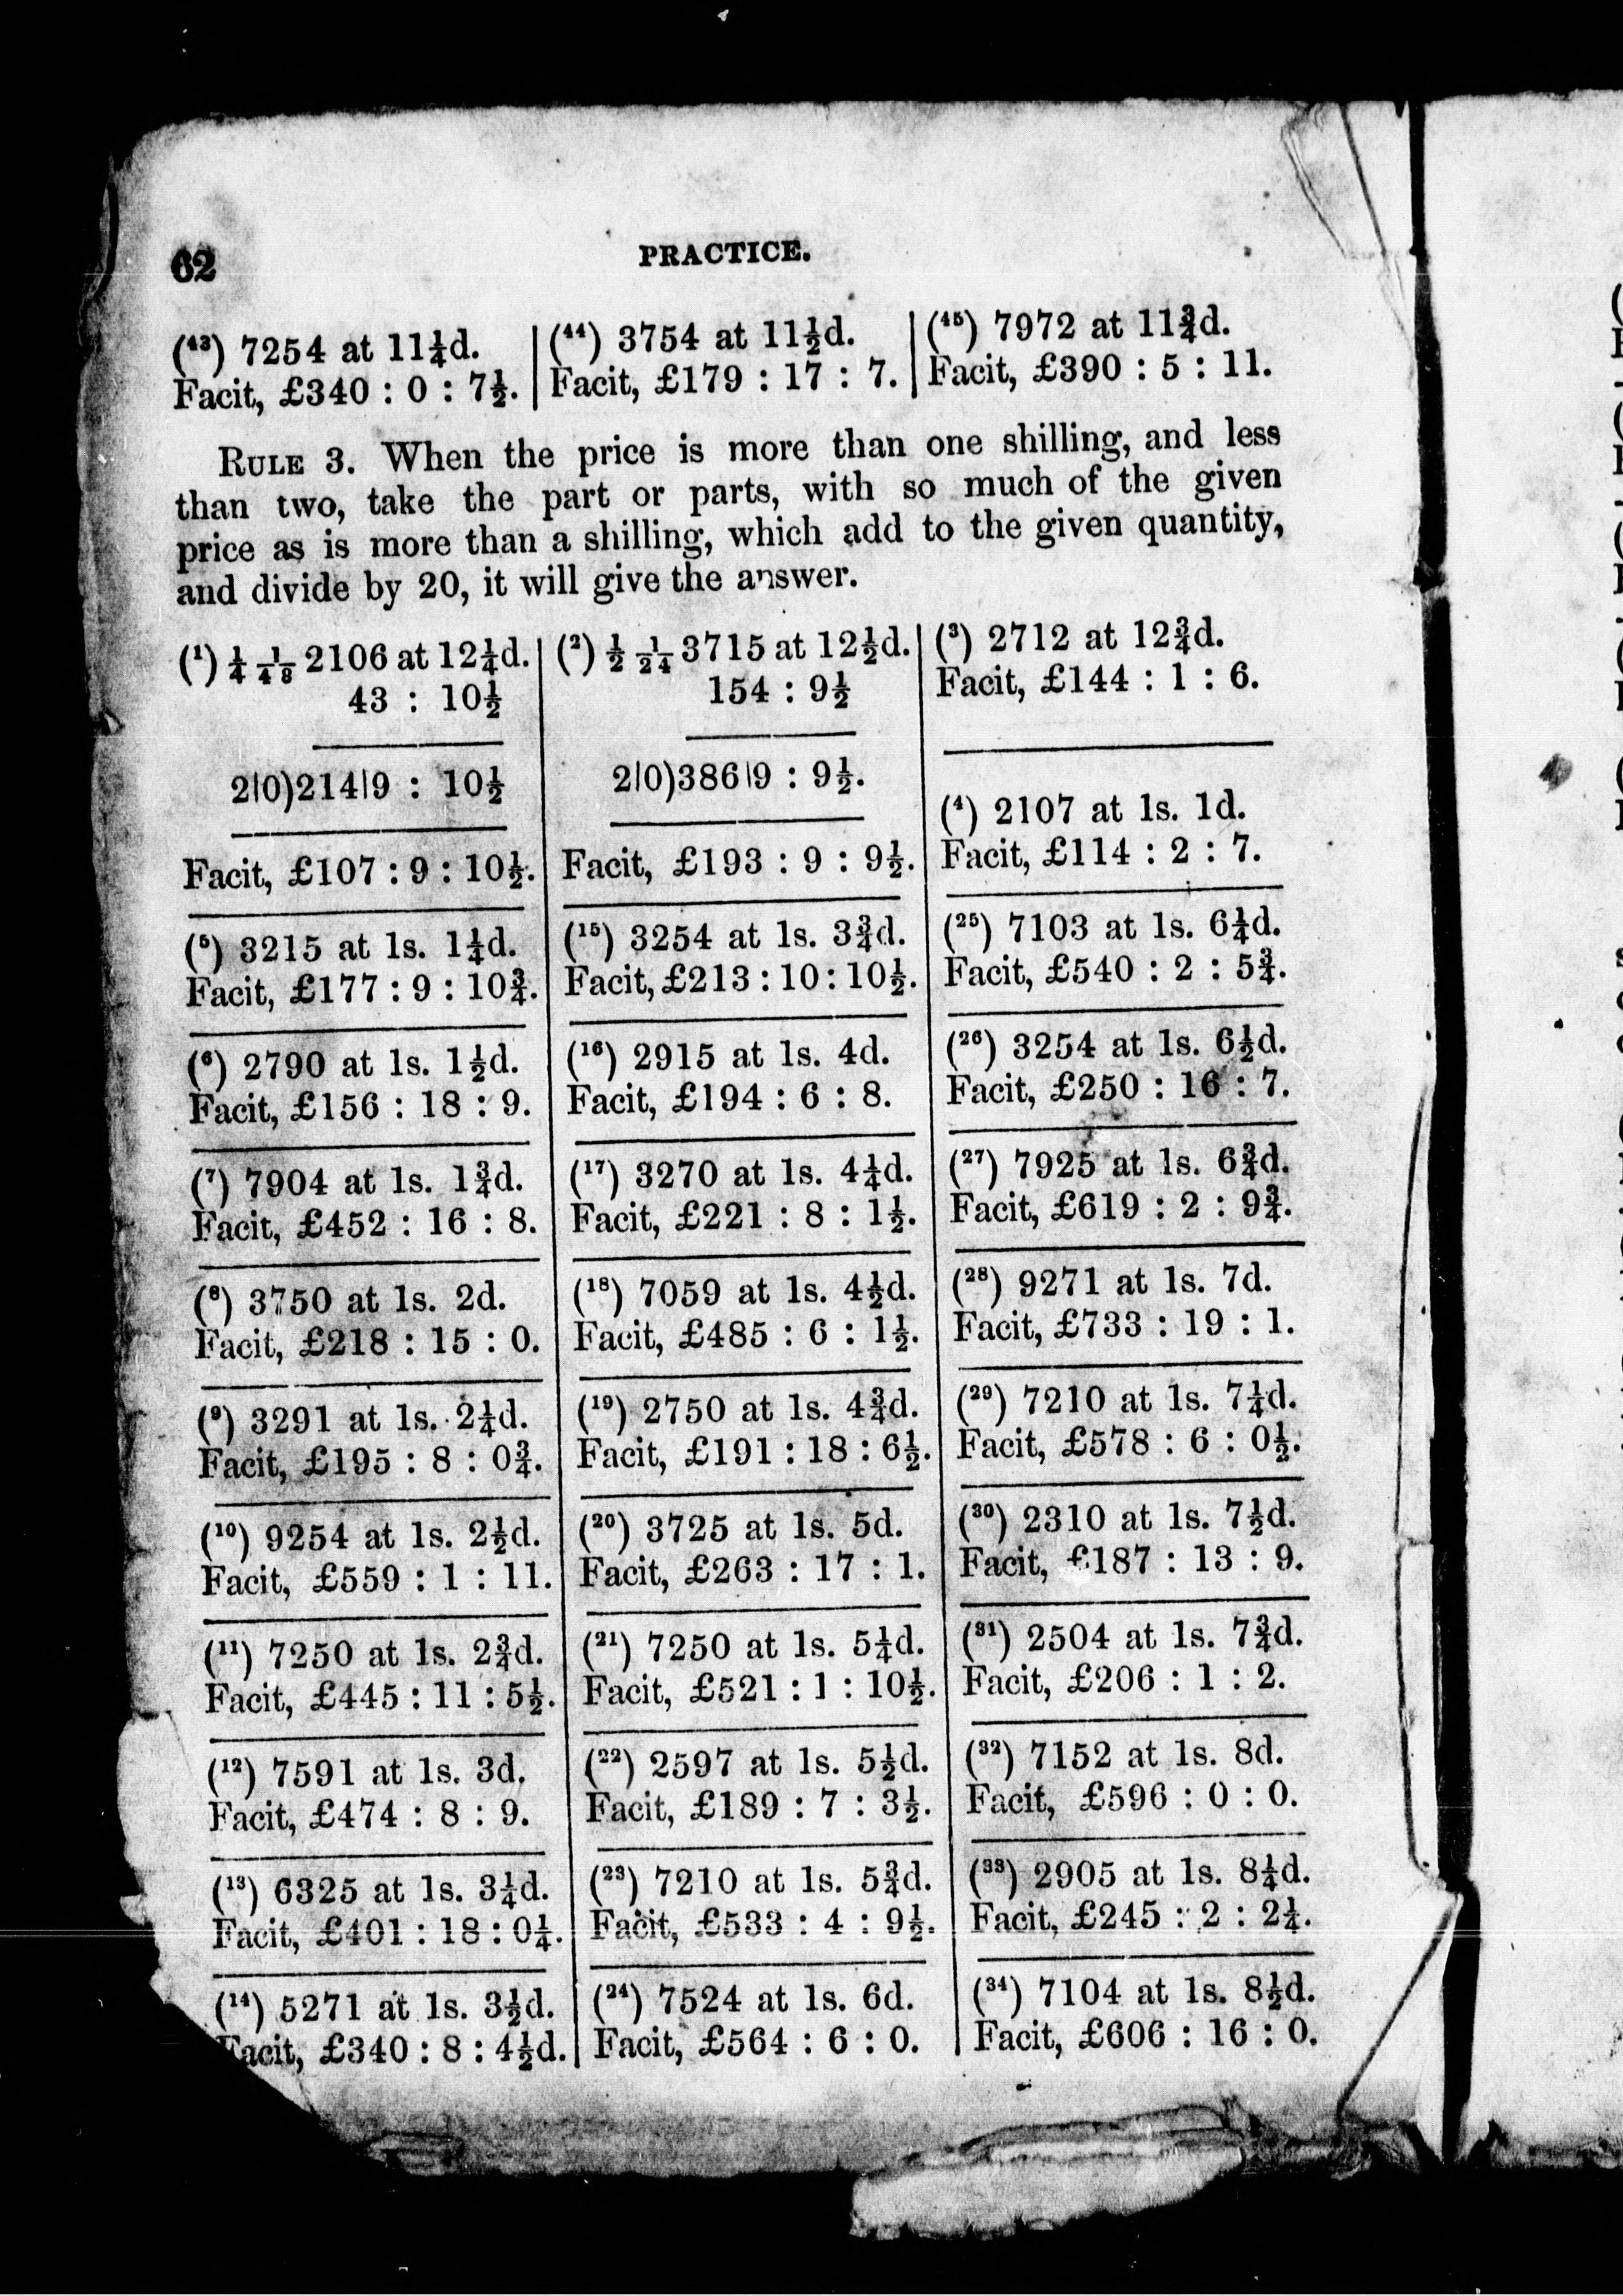 62
PRACTICE.
(43) 7254 at 11¼d.
Facit, £340 : 0 : 7½.
(44) 3754 at 11½d.
Facit, £179 : 17 : 7.
(45) 7972 at 11¾d.
Facit, £390 : 5 : 11.
RULE 3. When the price is more than one shilling, and less
than two, take the part or parts, with so much of the given
price as is more than a shilling, which add to the given quantity,
and divide by 20, it will give the answer.
(1) ¼ 1/48 2106 at 12¼d.
43 : 10½
2|0)214|9 : 10½
Facit, £107 : 9 : 10½.
(5) 3215 at 1s. 1¼d.
Facit, £177 : 9 : 10¾.
(6) 2790 at 1s. 1½d.
Facit, £156 : 18 : 9.
(7) 7904 at 1s. 1¾d.
Facit, £452 : 16 : 8.
(8) 3750 at 1s. 2d.
Facit, £218 : 15 : 0.
(9) 3291 at 1s. 2¼d.
Facit, £195 : 8 : 0¾.
(10) 9254 at 1s. 2½d.
Facit, £559 : 1 : 11.
(11) 7250 at 1s. 2¾d.
Facit, £445 : 11 : 5½.
(12) 7591 at 1s. 3d.
Facit, £474 : 8 : 9.
(13) 6325 at 1s. 3¼d.
Facit, £401 : 18 : 0¼.
(14) 5271 at 1s. 3½d.
Facit, £340 : 8 : 4½d.
(2) ½ 1/24 3715 at 12½d.
154 : 9½
2|0)386|9 : 9½.
Facit, £193 : 9 : 9½.
(15) 3254 at 1s. 3¾d.
Facit, £213 : 10 : 10½.
(16) 2915 at 1s. 4d.
Facit, £194 : 6 : 8.
(17) 3270 at 1s. 4¼d.
Facit, £221 : 8 : 1½.
(18) 7059 at 1s. 4½d.
Facit, £485 : 6 : 1½.
(19) 2750 at 1s. 4¾d.
Facit, £191 : 18 : 6½.
(20) 3725 at 1s. 5d.
Facit, £263 : 17 : 1.
(21) 7250 at 1s. 5¼d.
Facit, £521 : 1 : 10½.
(22) 2597 at 1s. 5½d.
Facit, £189 : 7 : 3½.
(23) 7210 at 1s. 5¾d.
Facit, £533 : 4 : 9½.
(24) 7524 at 1s. 6d.
Facit, £564 : 6 : 0.
(3) 2712 at 12¾d.
Facit, £144 : 1 : 6.
(4) 2107 at 1s. 1d.
Facit, £114 : 2 : 7.
(25) 7103 at 1s. 6¼d.
Facit, £540 : 2 : 5¾.
(26) 3254 at 1s. 6½d.
Facit, £250 : 16 : 7.
(27) 7925 at 1s. 6¾d.
Facit, £619 : 2 : 9¾.
(28) 9271 at 1s. 7d.
Facit, £733 : 19 : 1.
(29) 7210 at 1s. 7¼d.
Facit, £578 : 6 : 0½.
(30) 2310 at 1s. 7½d.
Facit, £187 : 13 : 9.
(31) 2504 at 1s. 7¾d.
Facit, £206 : 1 : 2.
(32) 7152 at 1s. 8d.
Facit, £596 : 0 : 0.
(33) 2905 at 1s. 8¼d.
Facit, £245 : 2 : 2¼.
(34) 7104 at 1s. 8½d.
Facit, £606 : 16 : 0.